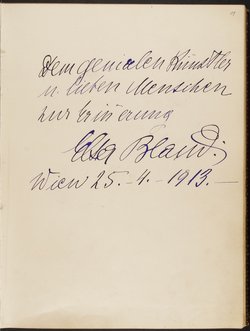 Dem genialen Künstler
u. lieben Menschen
zur Erinerung
Elsa Bland.
Wien 25.-4.-1913.-